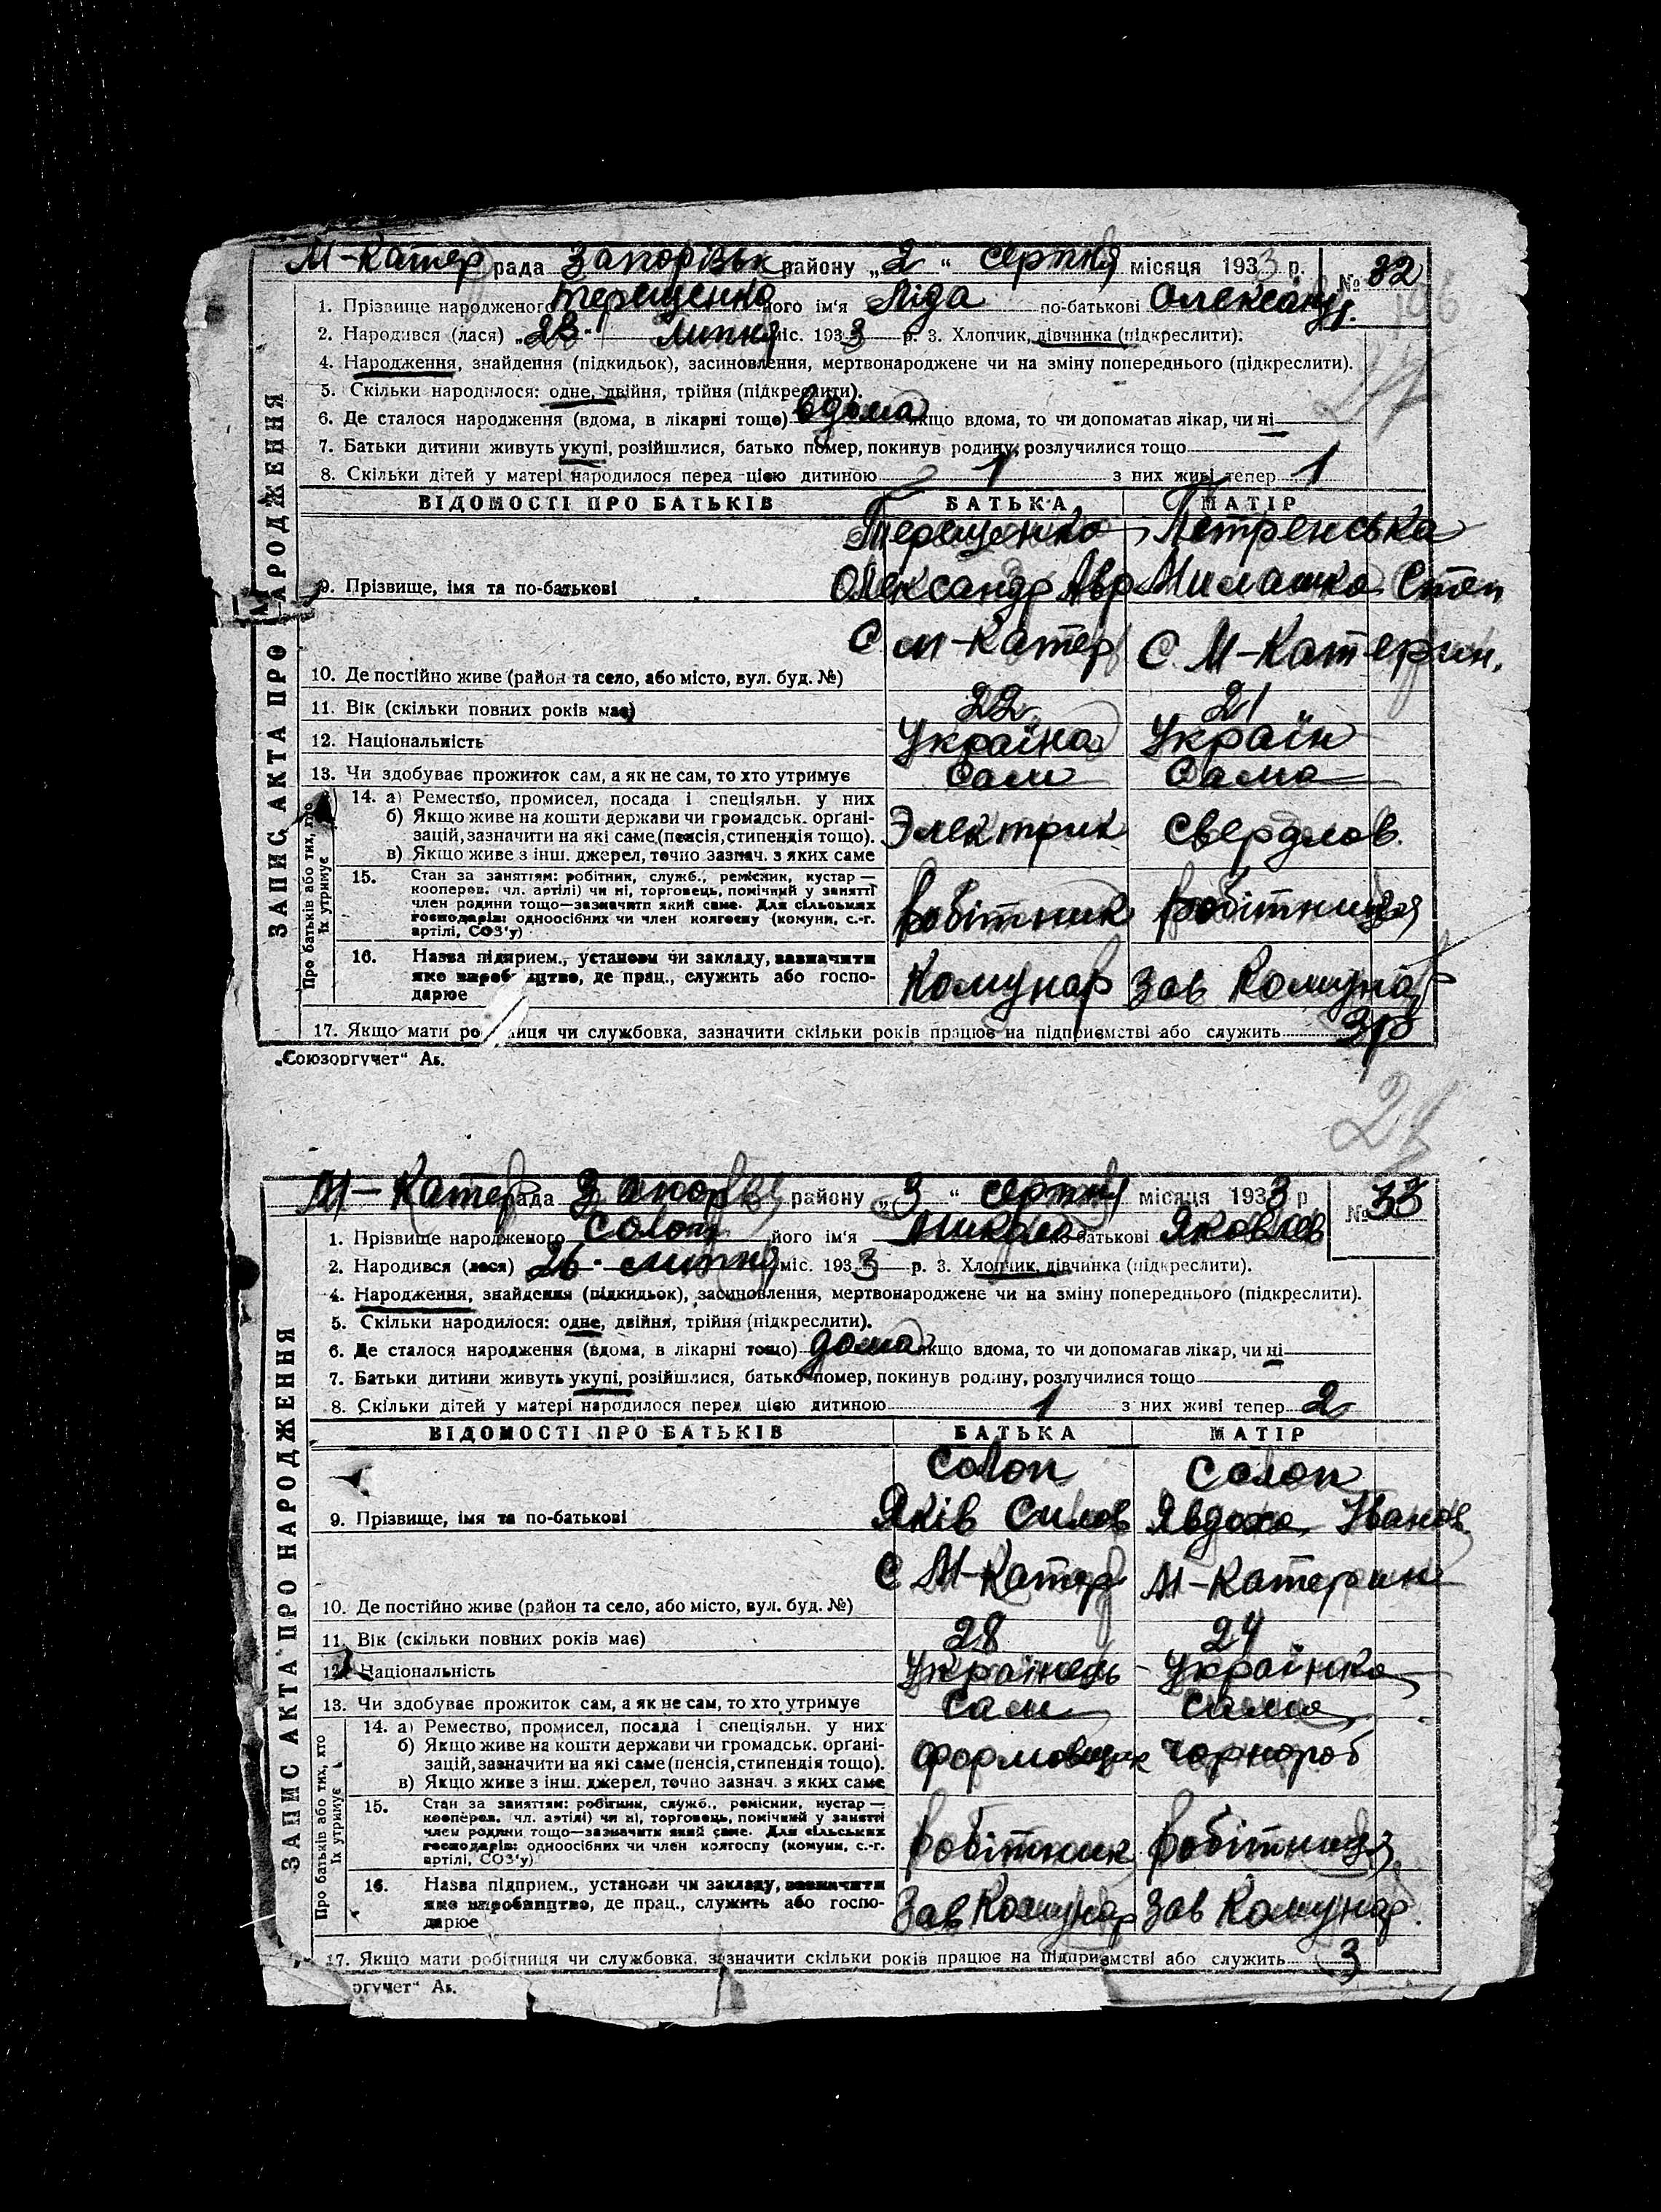 М-Катер рада Запорізьк району „2" серпня місяця 1933 р. № 32
1. Прізвище народженого Терещенко його ім'я Ліда по-батькові Олександр.
2. Народився (лася) „23" липня міс. 1933 р. 3. Хлопчик, дівчинка (підкреслити).
4. Народження, знайдення (підкидьок), засиновлення, мертвонароджене чи на зміну попереднього (підкреслити).
5. Скільки народилося: одне, двійня, трійня (підкреслити).
6. Де сталося народження (вдома, в лікарні тощо) вдома якщо вдома, то чи допомагав лікар, чи ні
7. Батьки дитини живуть укупі, розійшлися, батько помер, покинув родину, розлучилися тощо
8. Скільки дітей у матері народилося перед цією дитиною 1 з них живі тепер 1
ВІДОМОСТІ ПРО БАТЬКІВ БАТЬКА МАТІР
Терещенко Петренська
9. Прізвище, імя та по-батькові Олександр Авр Милашка Степ
С М-Катер С. М-Катерин.
10. Де постійно живе (район та село, або місто, вул. буд. №)
11. Вік (скільки повних років має) 22 21
12. Національність Україна Україн
13. Чи здобуває прожиток сам, а як не сам, то хто утримує Сам Сама
14. а) Ремество, промисел, посада і спеціяльн. у них
б) Якщо живе на кошти держави чи громадськ. органі-
зацій, зазначити на які саме (пенсія, стипендія тощо). Электрик Свердлов.
в) Якщо живе з інш. джерел, точно зазнач. з яких саме
15. Стан за заняттям: робітник, служб., ремісник, кустар —
кооперов. (чл. артілі) чи ні, торговець, помічний у занятті
член родини тощо—зазначити який саме. Для сільських
господарів: одноосібних чи член колгоспу (комуни, с.-г.
артілі, СОЗ'у) Робітник Робітниця
16. Назва підприєм., установи чи закладу, зазначити
яке виробництво, де прац., служить або госпо-
дарює Комунар Зав Комунар
17. Якщо мати робітниця чи службовка, зазначити скільки років працює на підприємстві або служить 3 р
ЗАПИС АКТА ПРО НАРОДЖЕННЯ
Про батьків або тих, хто
їх утримує
„Союзоргучет" Аг.
М-Катер рада Запорізь району „3" серпня місяця 1933 р № 33
1. Прізвище народженого Солоп його ім'я Микола по-батькові Яковлев
2. Народився (лася) 26. липня міс. 1933 р. 3. Хлопчик, дівчинка (підкреслити).
4. Народження, знайдення (підкидьок), засиновлення, мертвонароджене чи на зміну попереднього (підкреслити).
5. Скільки народилося: одне, двійня, трійня (підкреслити).
6. Де сталося народження (вдома, в лікарні тощо) дома якщо вдома, то чи допомагав лікар, чи ні
7. Батьки дитини живуть укупі, розійшлися, батько помер, покинув родину, розлучилися тощо
8. Скільки дітей у матері народилося перед цією дитиною 1 з них живі тепер 2
ВІДОМОСТІ ПРО БАТЬКІВ БАТЬКА МАТІР
Солоп Солоп
9. Прізвище, імя та по-батькові Яків Силов Явдоха Іванов
С М-Катер М-Катерин
10. Де постійно живе (район та село, або місто, вул. буд. №)
11. Вік (скільки повних років має) 28 24
12. Національність Українець Українка
13. Чи здобуває прожиток сам, а як не сам, то хто утримує Сам Сама
14. а) Ремество, промисел, посада і спеціяльн. у них
б) Якщо живе на кошти держави чи громадськ. органі-
зацій, зазначити на які саме (пенсія, стипендія тощо). формовщик чорнороб
в) Якщо живе з інш. джерел, точно зазнач. з яких саме
15. Стан за заняттям: робітник, служб., ремісник, кустар —
кооперов. (чл. артілі) чи ні, торговець, помічний у занятті
член родини тощо—зазначити який саме. Для сільських
господарів: одноосібних чи член колгоспу (комуни, с.-г.
артілі, СОЗ'у) Робітник Робітниця
16. Назва підприєм., установи чи закладу, зазначити
яке виробництво, де прац., служить або госпо-
дарює Зав Комунар Зав Комунар.
17. Якщо мати робітниця чи службовка, зазначити скільки років працює на підприємстві або служить 3
ЗАПИС АКТА ПРО НАРОДЖЕННЯ
Про батьків або тих, хто
їх утримує
оргучет" Аг.